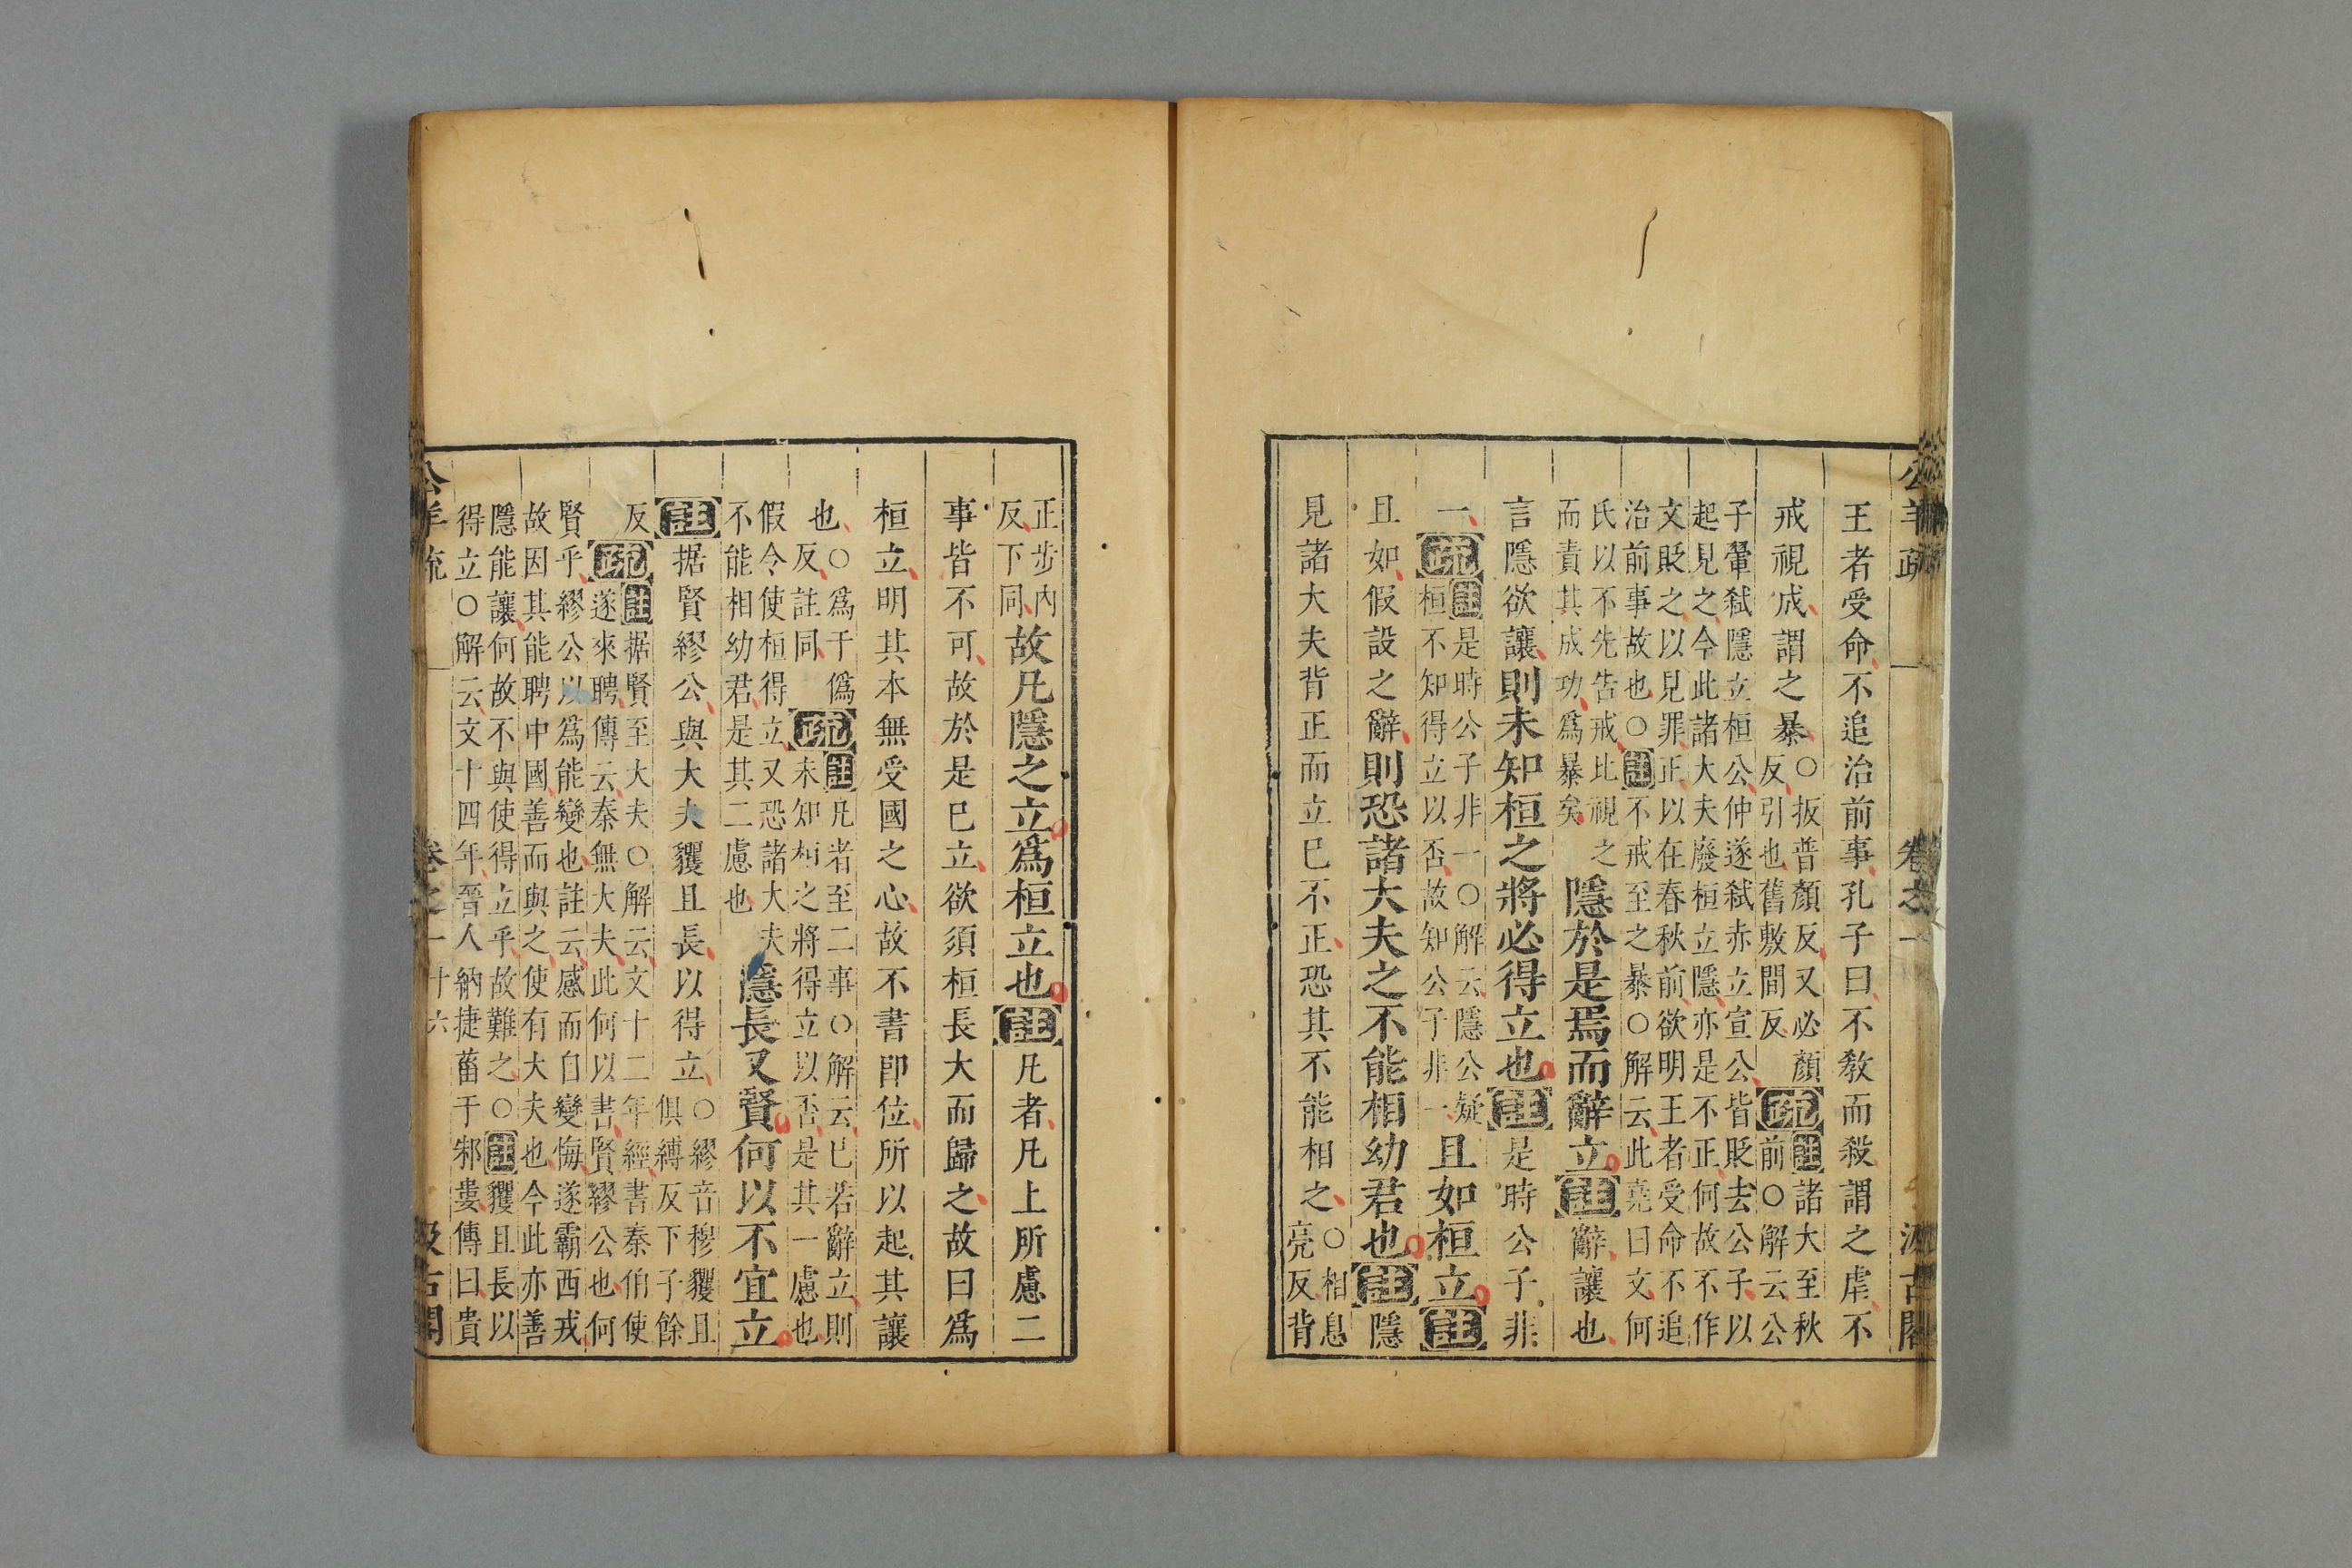 公羊疏 卷之一 汲古閣
王者受命不追治前事孔子曰不教而殺謂之虐不
戒視成謂之暴○扳普顏反又必顏
反引也舊敷間反疏註諸大至秋
前○解云公
子翬弑隱立桓公仲遂弑赤立宣公皆貶去公子以
起見之今此諸大夫廢桓立隱亦是不正何故不作
文貶之以見罪正以在春秋前欲明王者受命不追
治前事故也○註不戒至之暴○解云此堯曰文何
氏以不先告戒比視之
而責其成功爲暴矣隱於是焉而辭立註辭讓也
言隱欲讓則未知桓之將必得立也註是時公子非
一疏註是時公子非一○解云隱公疑
桓不知得立以否故知公子非一且如桓立註
且如假設之辭則恐諸大夫之不能相幼君也註隱
見諸大夫背正而立已不正恐其不能相之○相息
亮反背
正步內
反下同故凡隱之立爲桓立也註凡者凡上所慮二
事皆不可故於是已立欲須桓長大而歸之故曰爲
桓立明其本無受國之心故不書卽位所以起其讓
也○爲于僞
反註同疏註凡者至二事○解云已若辭立則
未知桓之將得立以否是其一慮也
假令使桓得立又恐諸大夫
不能相幼君是其二慮也隱長又賢何以不宜立
註据賢繆公與大夫貜且長以得立○繆音穆貜且
俱縛反下子餘
反疏註据賢至大夫○解云文十二年經書秦伯使
遂來聘傳云秦無大夫此何以書賢繆公也何
賢乎繆公以爲能變也註云感而自變悔遂霸西戎
故因其能聘中國善而與之使有大夫也今此亦善
隱能讓何故不與使得立乎故難之○註貜且長以
得立○解云文十四年晉人納捷菑于邾婁傳曰貴
公羊疏 卷之一 十六 汲古閣